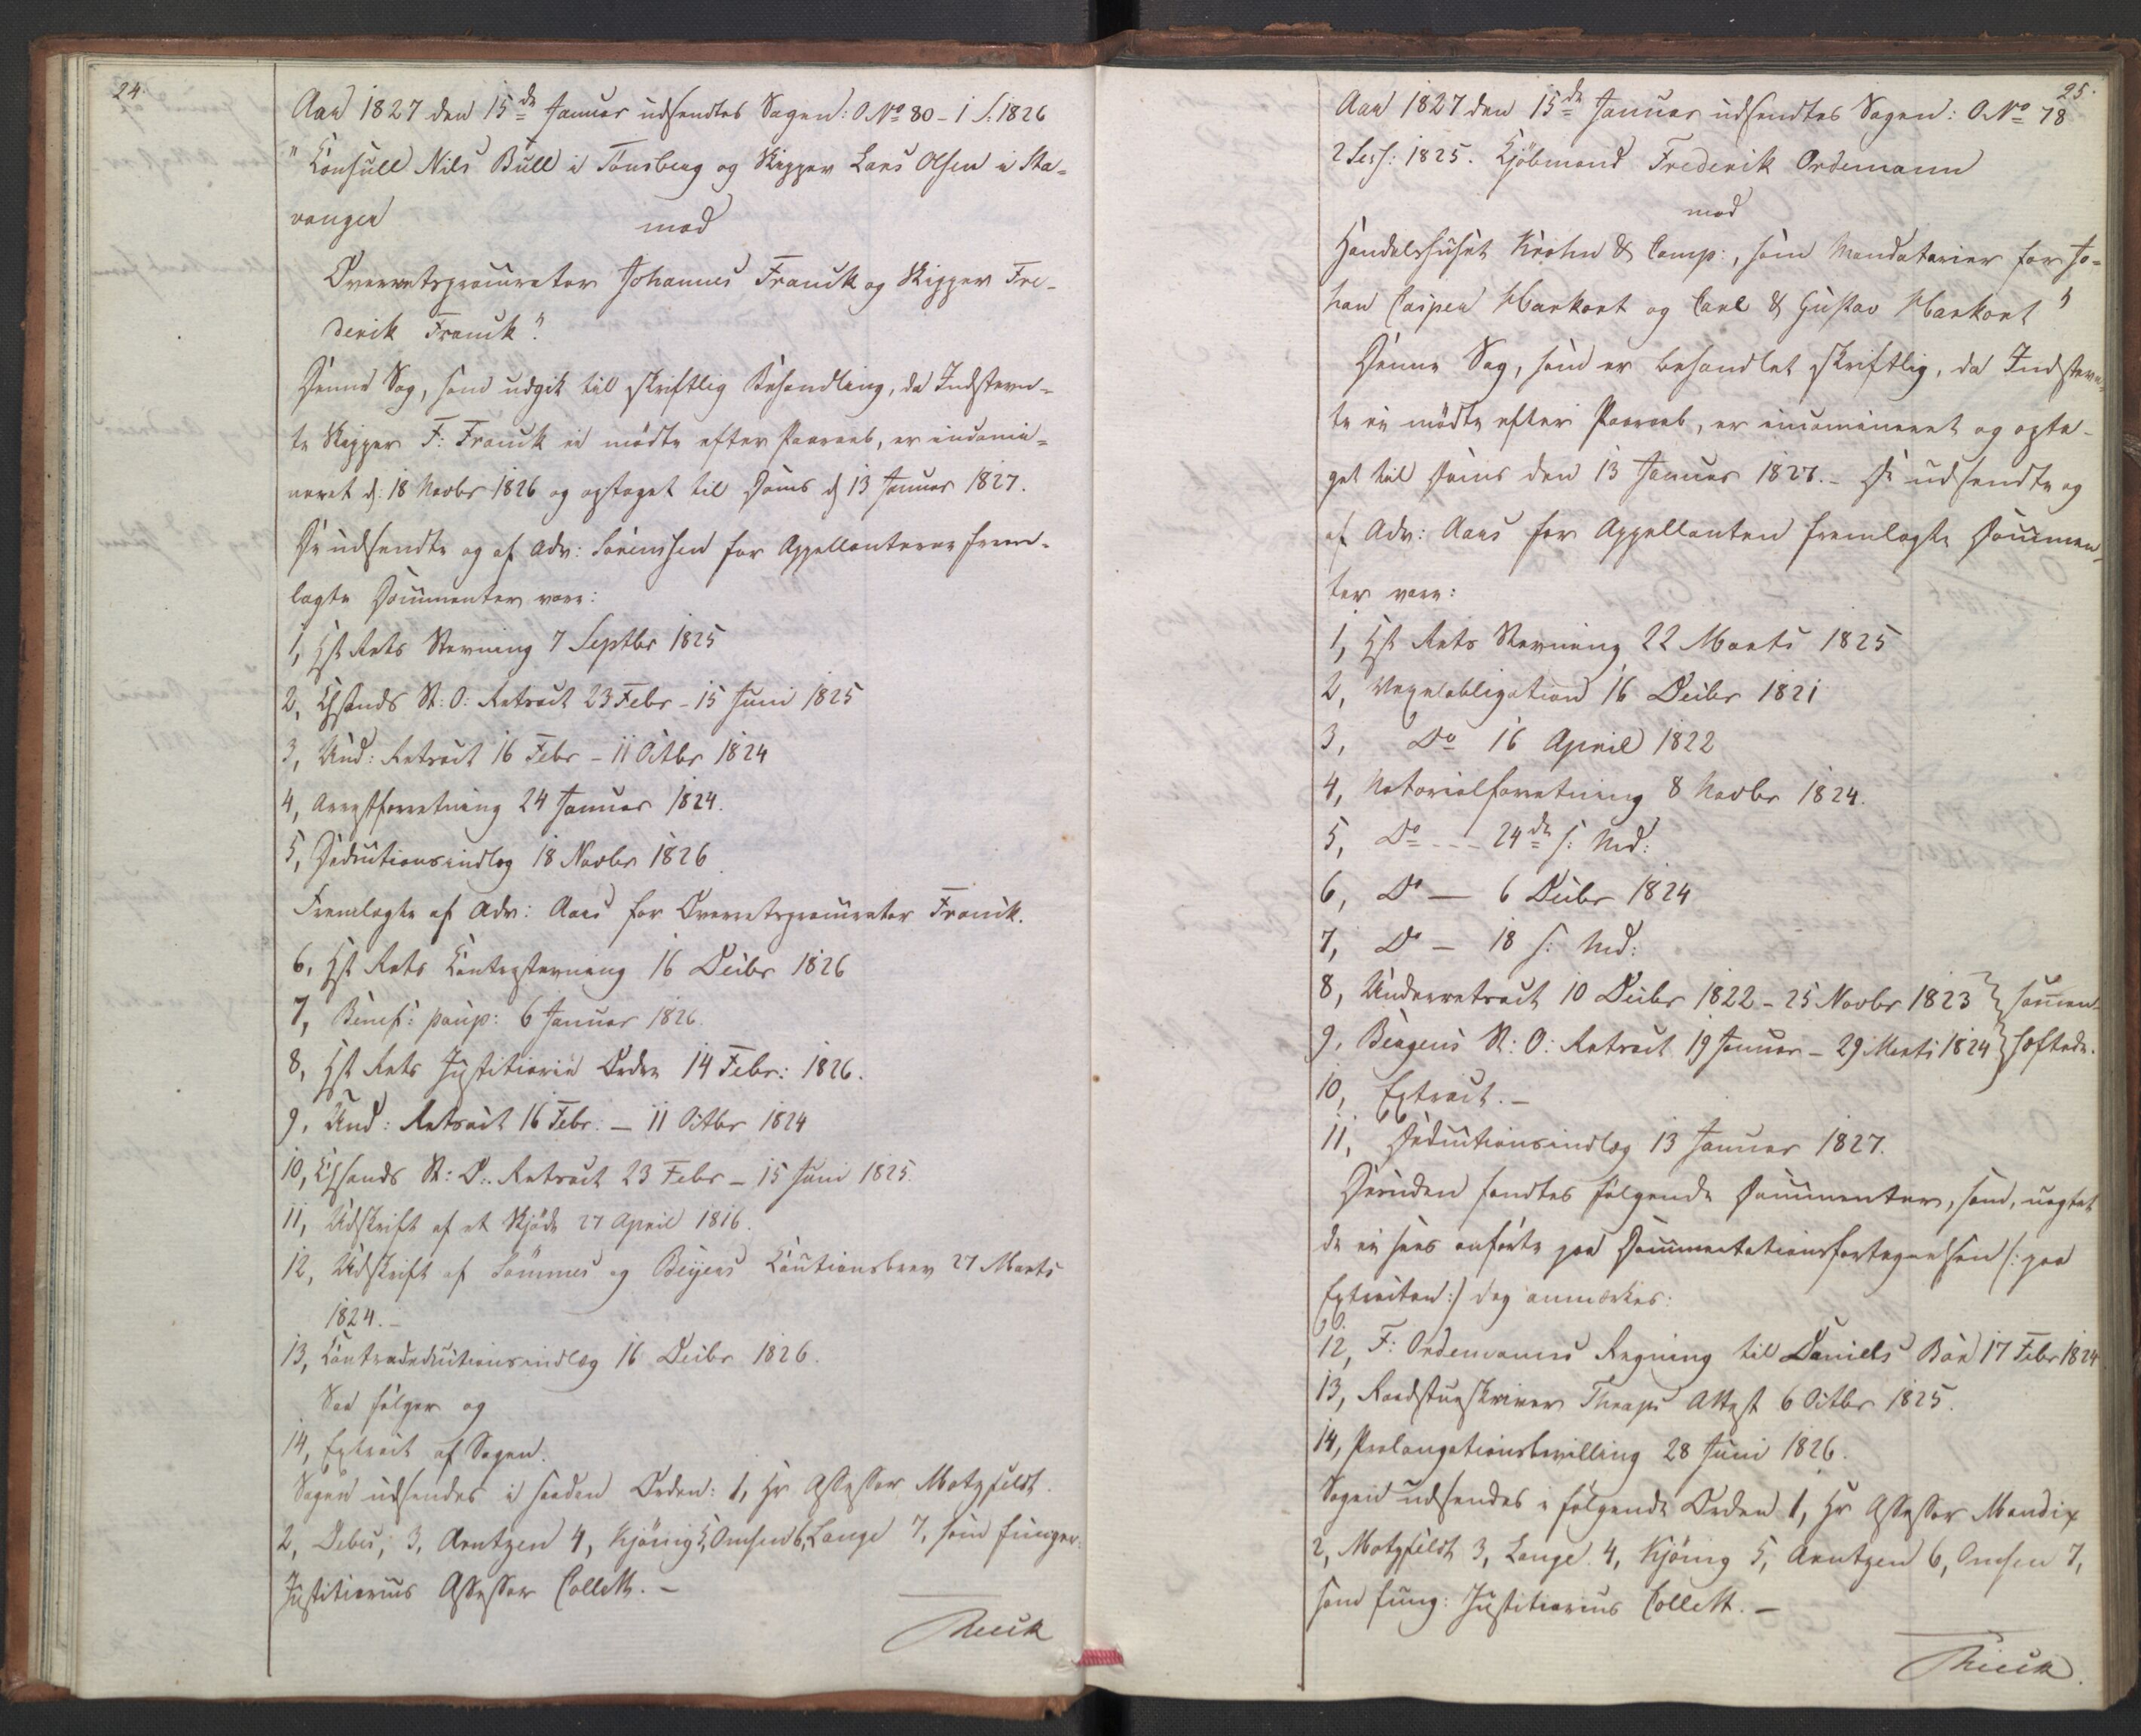 24
Aar 1827 den 15de Januar udsendtes Sagen: O. No 80 - 1 S. 1826
"Konsull Nils Bull i Tønsberg og Skipper Lars Olsen i Sta-
vanger mod
Overretsprocurator Johannes Franck og Skipper Fre-
derik Franck."
Denne Sag, som udgik til skriftlig Behandling, da Indstevn-
te Skipper F: Franck ei mødte efter Paaraab, er incami-
neret d: 18 Novbr 1826 og optaget til Doms d 13 Januar 1827.
De udsendte og af Adv: Sörenssen for Appellanterne frem-
lagte Documenter vare:
1, Hst Rets Stevning 7 Septbr 1825
2, Chsands St: O: Retsact 23 Febr - 15 Juni 1825
3, Und: Retsact 16 Febr - 11 Octbr 1824
4, Arrestforretning 24 Januar 1824.
5, Deductionsindlæg 18 Novbr 1826.
Fremlagte af Adv: Aars for Overretsprocurator Franck.
6, Hst Rets Contrastevning 16 Decbr 1826
7, Benef: paup: 6 Januar 1826.
8, Hst Rets Justitiarii Ordre 14 Febr: 1826.
9, Und: Retsact 16 Febr. - 11 Octbr 1824
10, Chsands St: O: Retsact 23 Febr - 15 Juni 1825.
11, Udskrift af et Skjöde 27 April 1816.
12, Udskrift af Sömmes og Beyers Cautionsbrev 27 Marts
1824.-
13, Contradeductionsindlæg 16 Decbr 1826.
Saa følger og
14, Extract af Sagen.
Sagen udsendes i saadan Orden: 1, Hr Assessor Motzfeldt.
2, Debes, 3, Arntzen 4, Kjönig 5, Omsen 6, Lange 7, som funger:
Justitiarius Assessor Collett. -
25.
Aar 1827 den 15de Januar udsendtes Sagen: O. No 78
2 Sess: 1825. Kjöbmand Frederik Ordemann
mod
Handelshuset Krohn & Comp:, som Mandatarier for Jo-
han Casper Harkort og Carl & Gustav Harkort"
Denne Sag, som er behandlet skriftlig, da Indstevn-
te ei mødte efter Paaraab, er incamineret og opta-
get til Doms den 13 Januar 1827. - De udsendte og
af Adv: Aars for Appellanten fremlagte Documen-
ter vare:
1, Hst Rets Stevning 22 Marts 1825
2, Vexelobligation 16 Decbr 1821
3, Do 16 April 1822
4, Notarialforretning 8 Novbr 1824.
5, Do --- 24de s: Md:
6, Do — 6 Decbr 1824
7, Do — 18 s: Md:
8, Underretsact 10 Decbr 1822 - 25 Novbr 1823 } sammen-
9, Bergens St: O: Retsact 19 Januar - 29 Marts 1824 } hæftede.
10, Extract. -
11, Deductionsindlæg 13 Januar 1827.
Desuden fandtes følgende Documenter, som, uagtet
de ei sees anførte paa Documentationsfortegnelsen (: paa
Extracten :) dog anmærkes:
12, F: Ordemanns Regning til Daniels Bön 17 Febr 1824
13, Raadstueskriver Thraps Attest 6 Octbr 1825.
14, Prolongationsbevilling 28 Juni 1826.
Sagen udsendes i følgende Orden 1, Hr Assessor Mandix
2, Motzfeldt 3, Lange 4, Kjönig 5, Arntzen 6, Omsen 7,
som fung: Justitiarius Collett. -